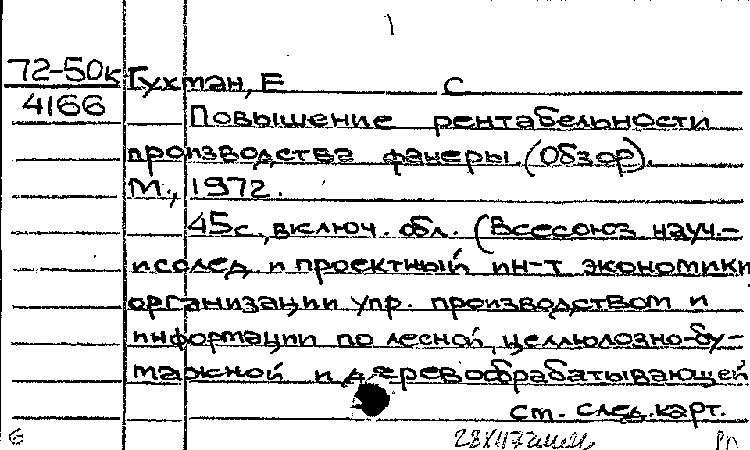 72-50к Гухман, Е С
4166
Повышение рентабельности
производства фанеры. (Обзор).
М., 1972.
45с., включ. обл. (Всесоюз науч.-
исслед и проектный ин-т экономики
организации упр. производством и
информации по лесной, целлюлозно-бу-
мажной и деревообрабатывающей
см. след. карт.